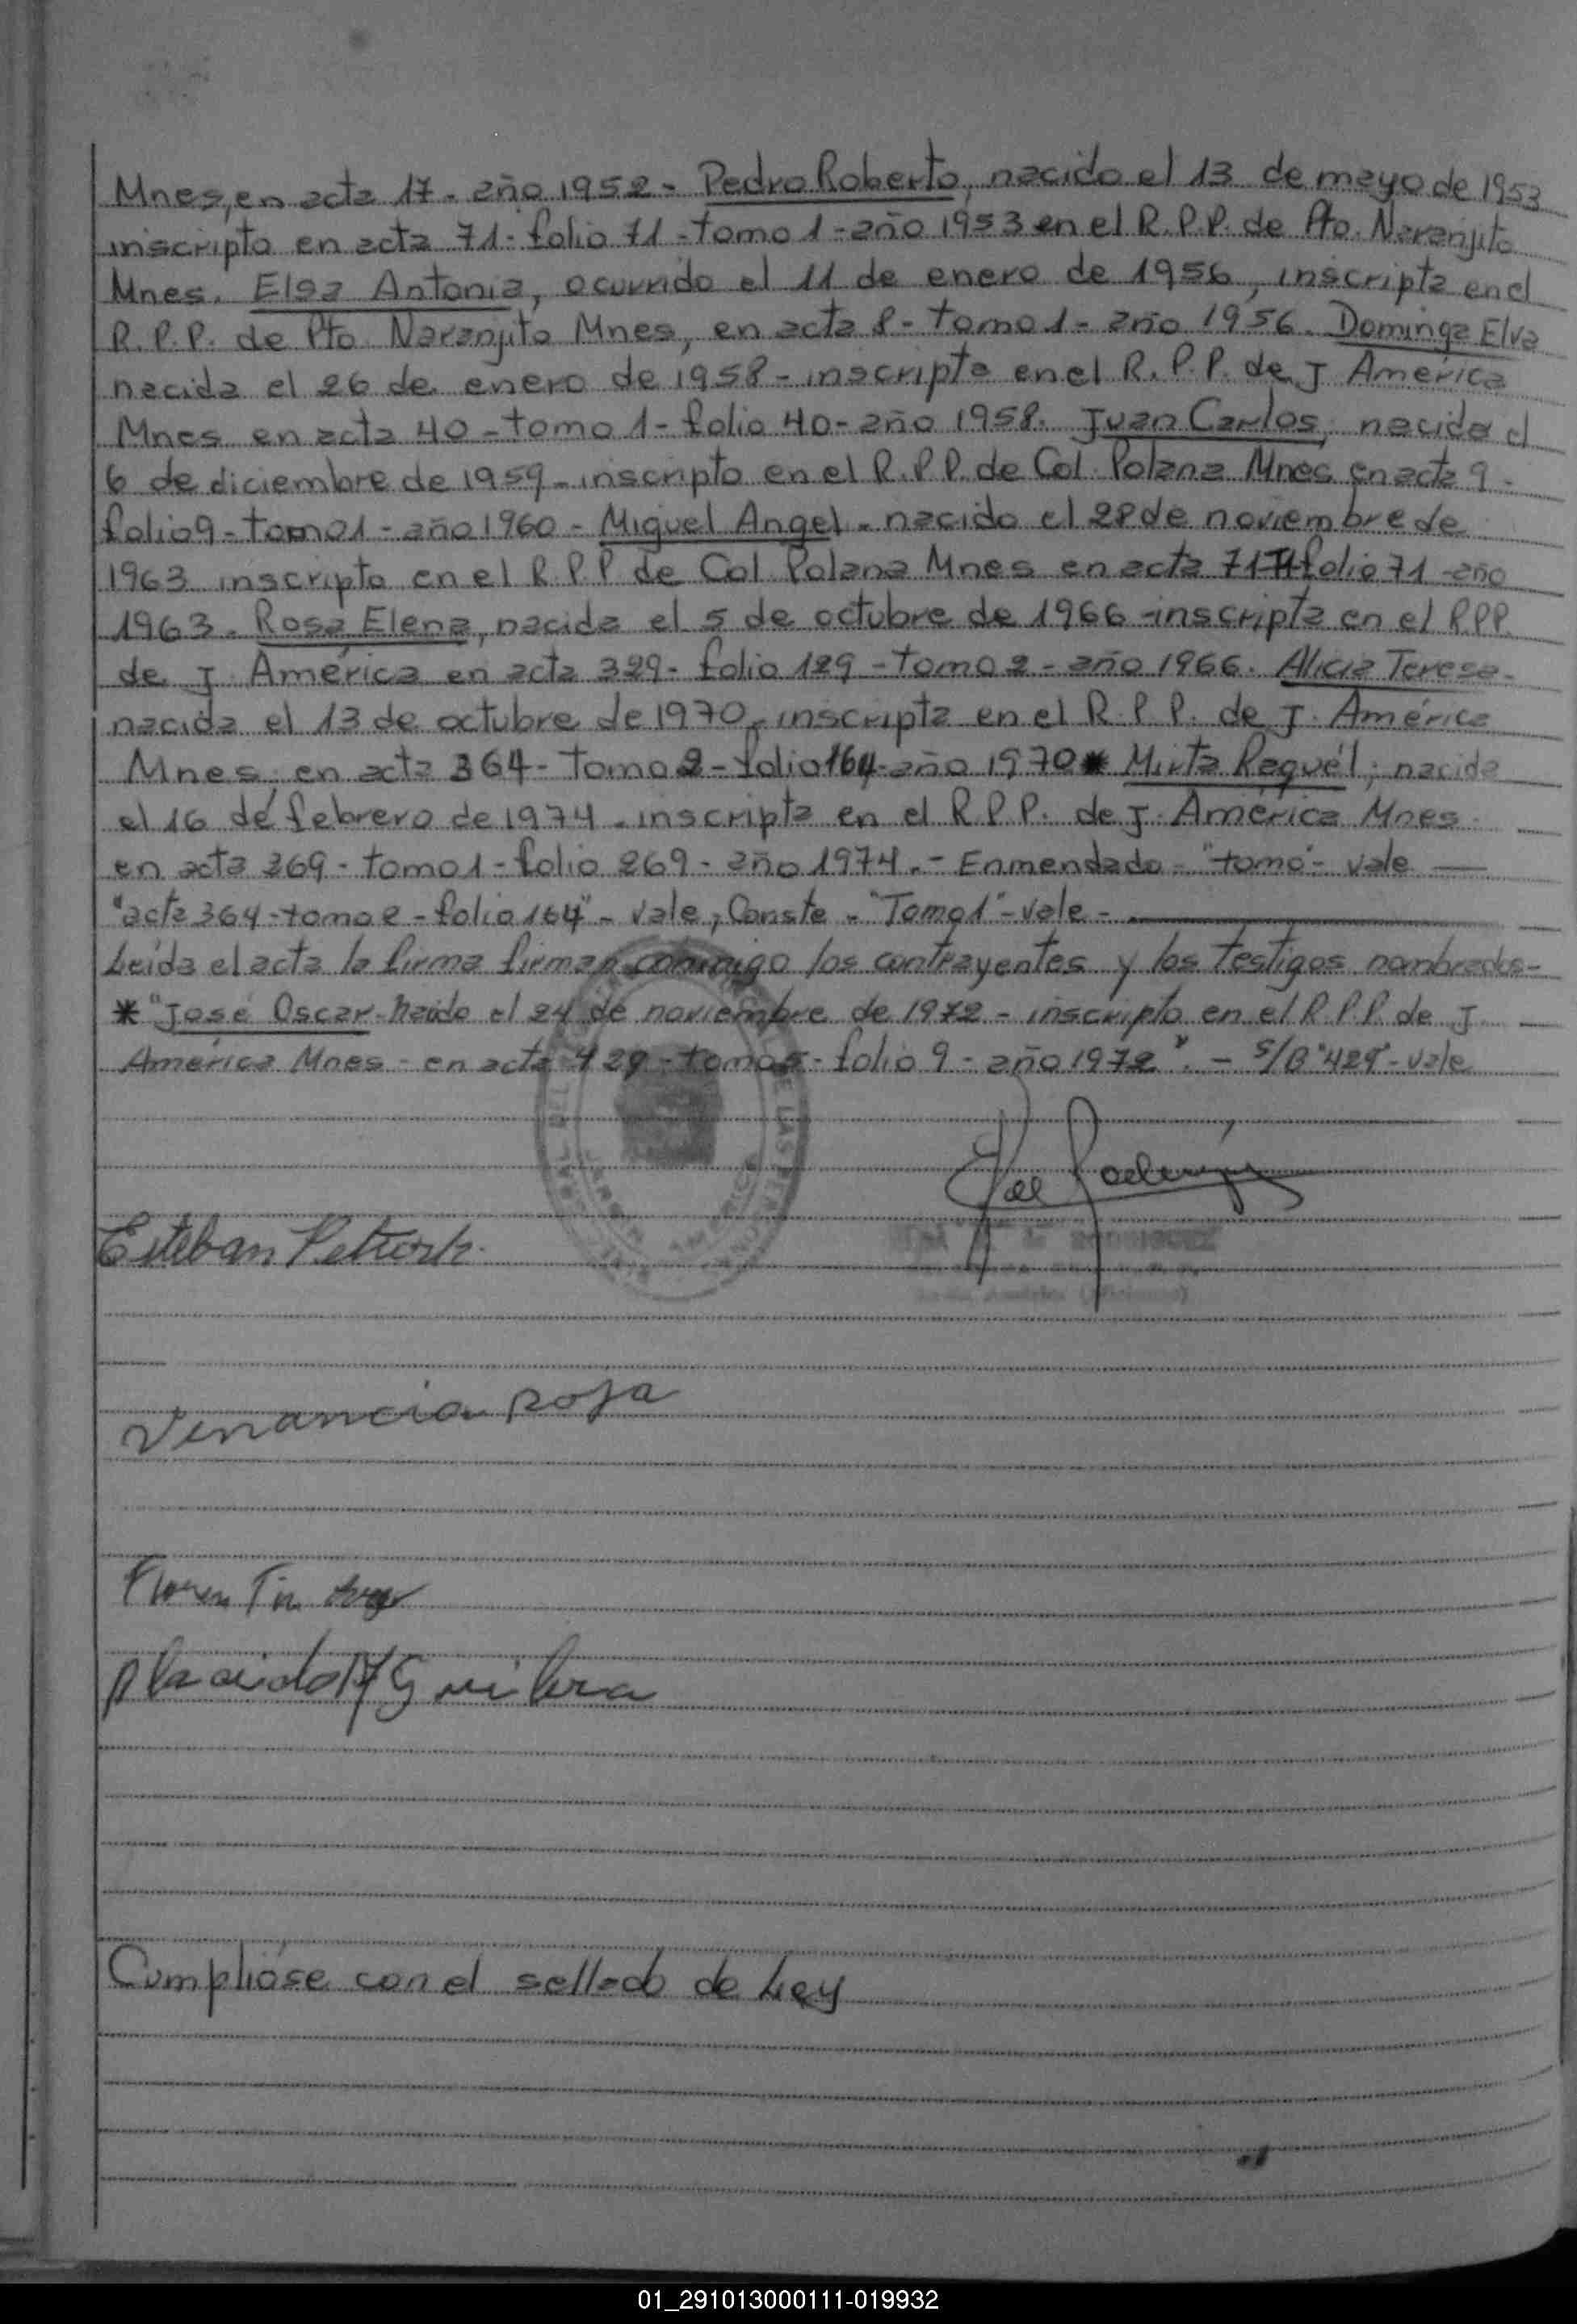 Mnes, en acta 17 - año 1952 - Pedro Roberto, nacido el 13 de mayo de 1953
inscripto en acta 71 - folio 71 - tomo 1 - año 1953 en el R.P.P. de Pto. Naranjito
Mnes. Elsa Antonia, ocurrido el 11 de enero de 1956, inscripta en el
R.P.P. de Pto Naranjito Mnes, en acta 8 - tomo 1 - año 1956. Dominga Elva
nacida el 26 de enero de 1958 - inscripta en el R.P.P. de J América
Mnes en acta 40 - tomo 1 - folio 40 - año 1958. Juan Carlos, nacido el
6 de diciembre de 1959 - inscripto en el R.P.P. de Col. Polana Mnes en acta 9 -
folio 9 - tomo 1 - año 1960 - Miguel Angel - nacido el 28 de noviembre de
1963 inscripto en el R.P.P de Col. Polana Mnes en acta 71 folio 71 - año
1963. Rosa Elena, nacida el 5 de octubre de 1966 - inscripta en el R.P.P.
de J. América en acta 329 - folio 129 - tomo 2 - año 1966. Alicia Teresa -
nacida el 13 de octubre de 1970 - inscripta en el R.P.P. de J. América
Mnes, en acta 364 - Tomo 2 - folio 164 - año 1970 * Mirta Raquél; nacida
el 16 de febrero de 1974 - inscripta en el R.P.P. de J. América Mnes
en acta 369 - tomo 1 - folio 269 - año 1974. - Enmendado - "tomo" - vale
"acta 364 - tomo 2 - folio 164" - vale, Conste - "Tomo 1" - vale -
Leída el acta la firma firman conmigo los contrayentes y los testigos nombrados -
* "José Oscar - nacido el 24 de noviembre de 1972 - inscripto en el R.P.P. de J.
América Mnes - en acta 429 - tomo 5 - folio 9 - año 1972". - S/B "429" - vale
Esteban
RODRIGUEZ
América (Misiones)
Venancia Rosa
Floren Tin
Placido
Cumplióse con el sellado de Ley
01_291013000111-019932